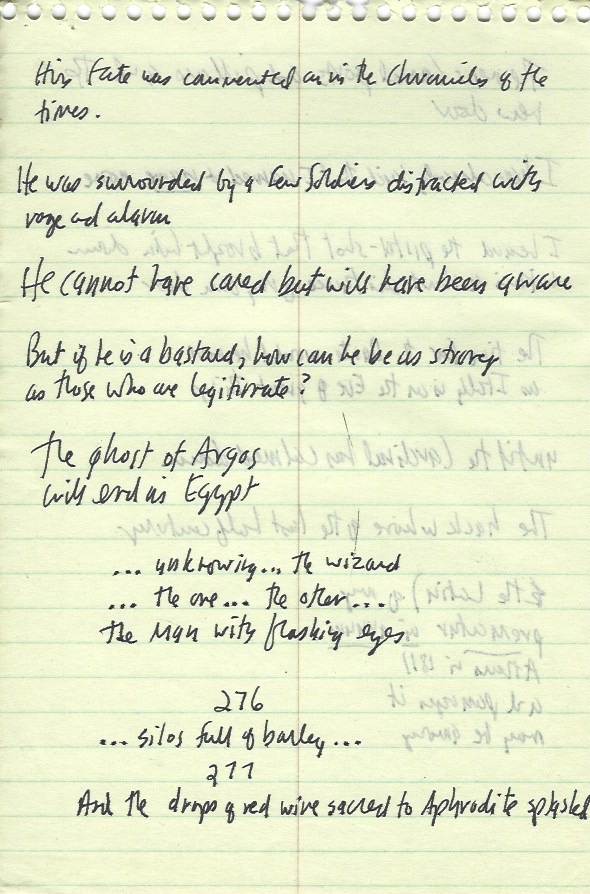 His Fate was commented on in the Chronicles of the
times.
He was surrounded by a few Soldiers distracted with
rage and alarm
He cannot have cared but will have been aware
But if he is a bastard, how can he be as strong
as those who are legitimate?
The ghost of Argos
will end in Egypt
... unknowing... the wizard
... the one... the other...
the man with flashing eyes
276
... silos full of barley...
277
And the drops of red wine sacred to Aphrodite splashed